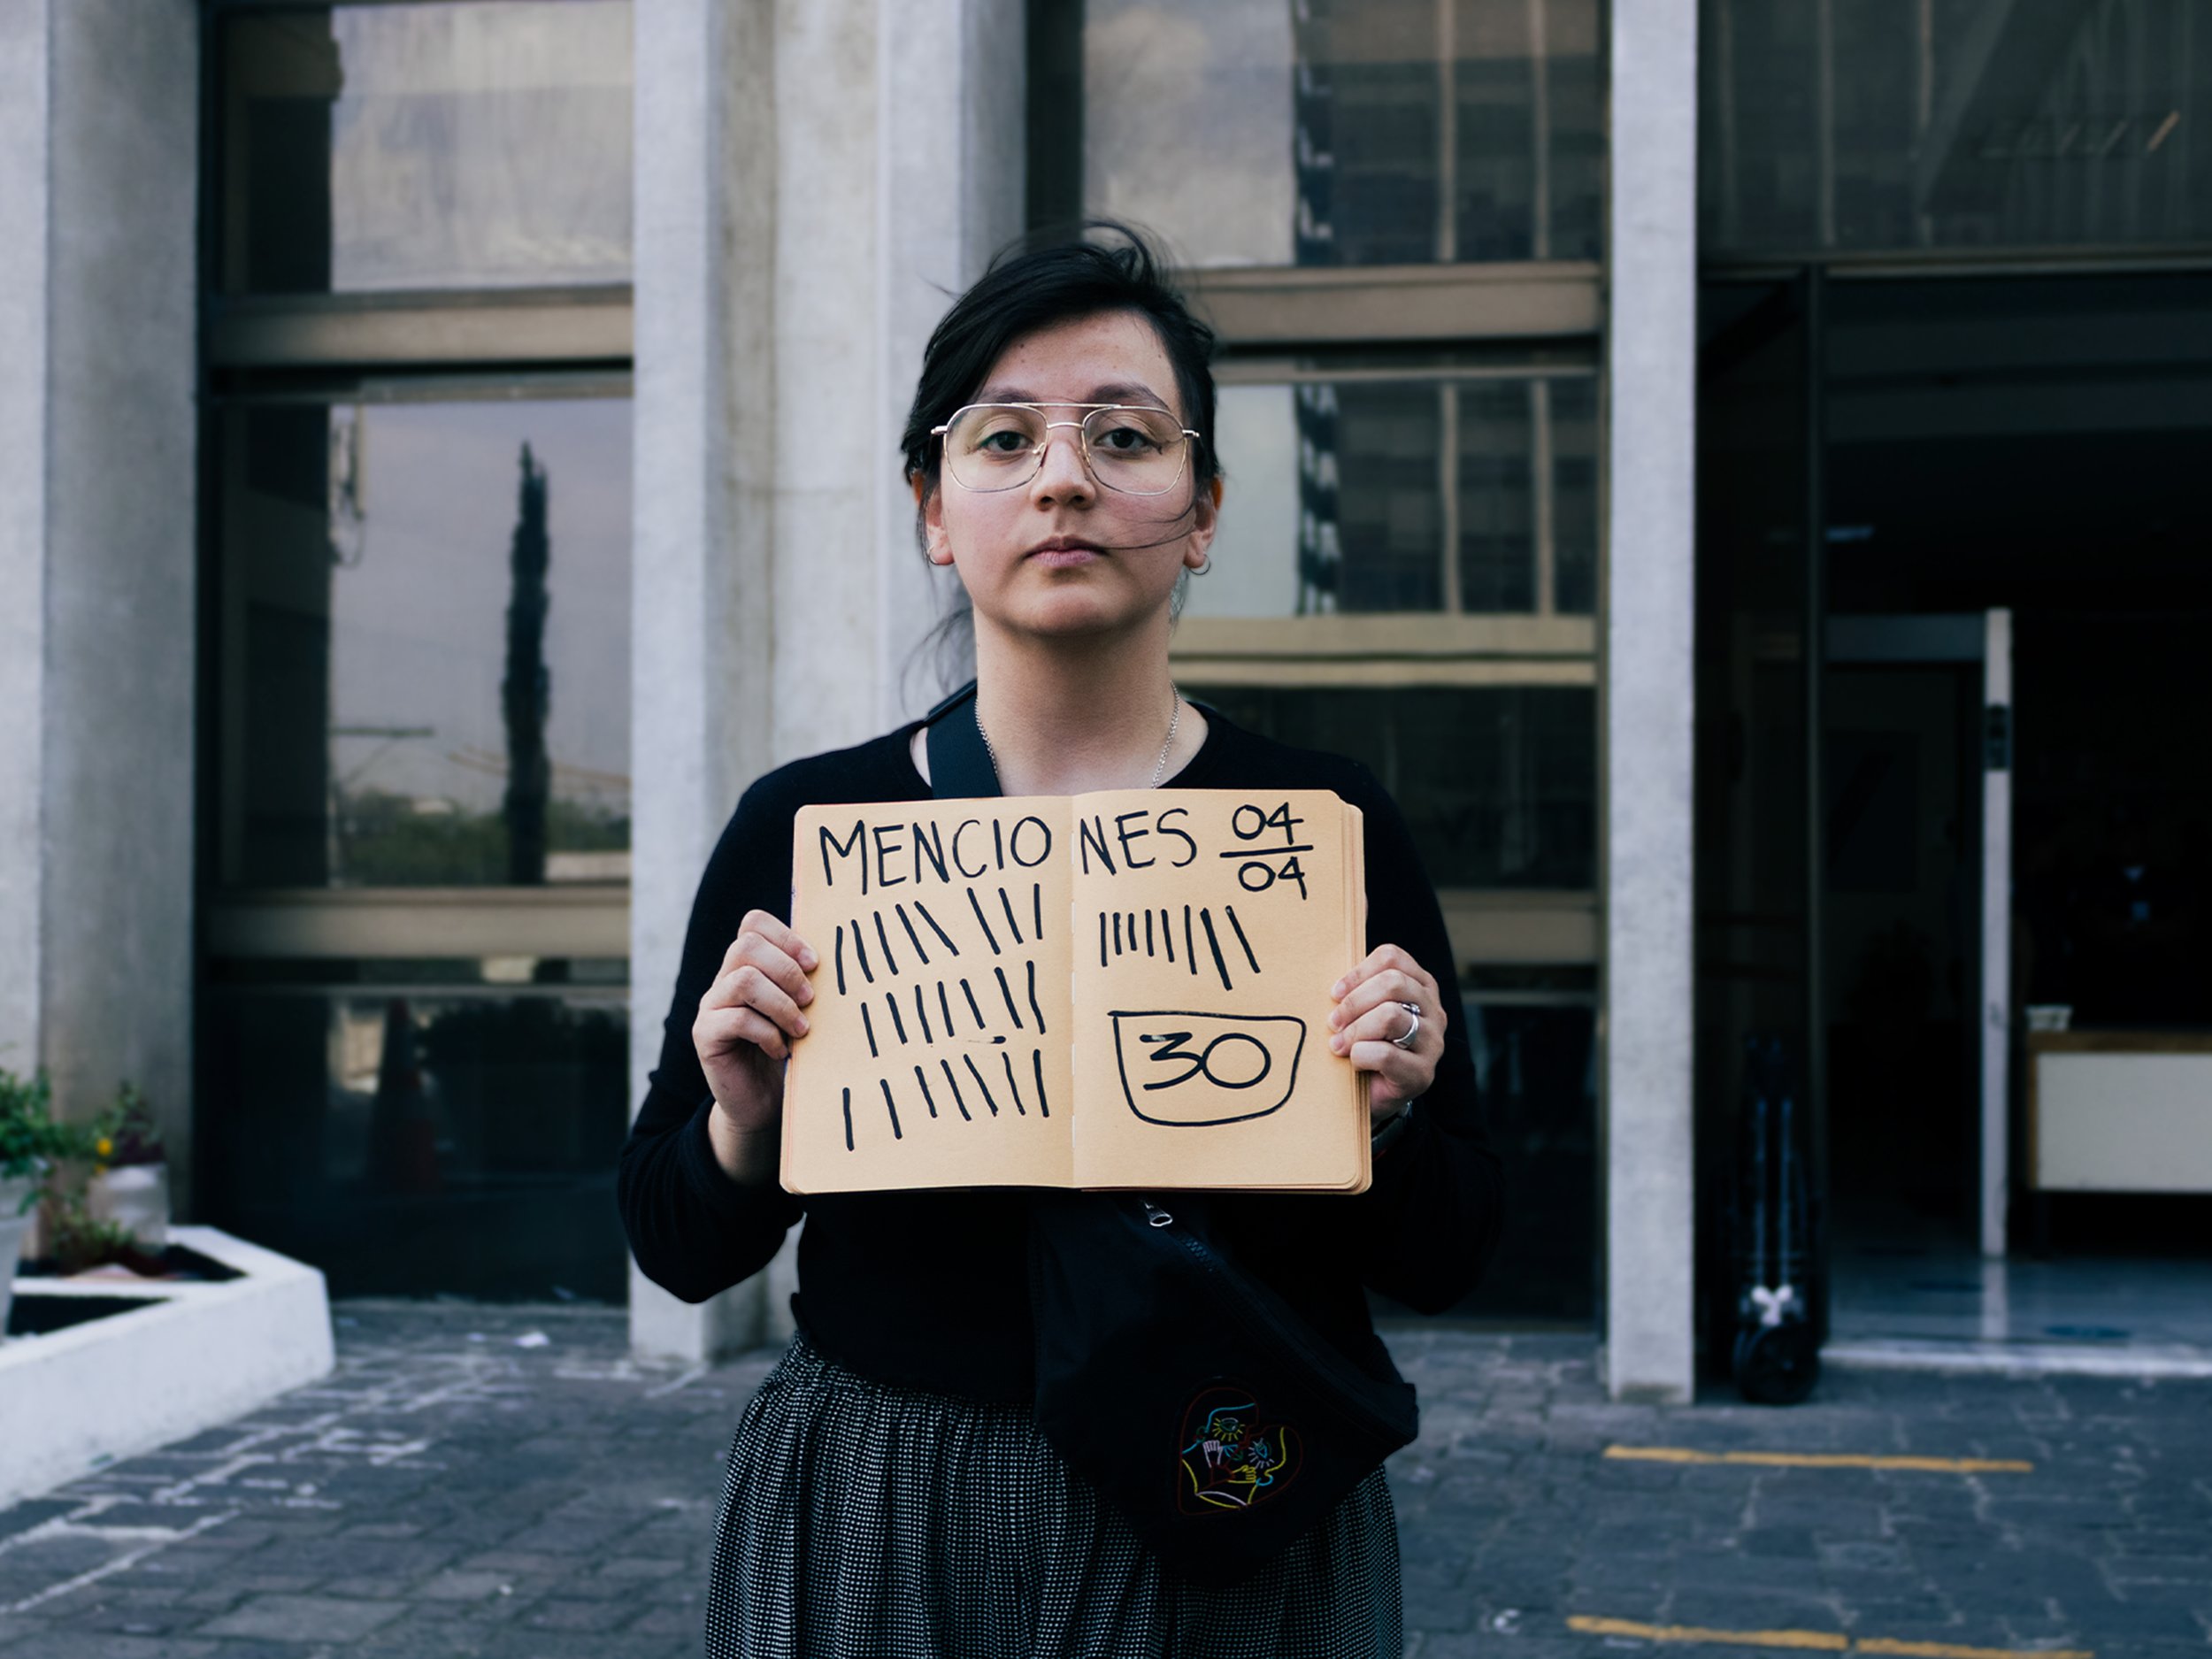 MENCIONES 04
04
30